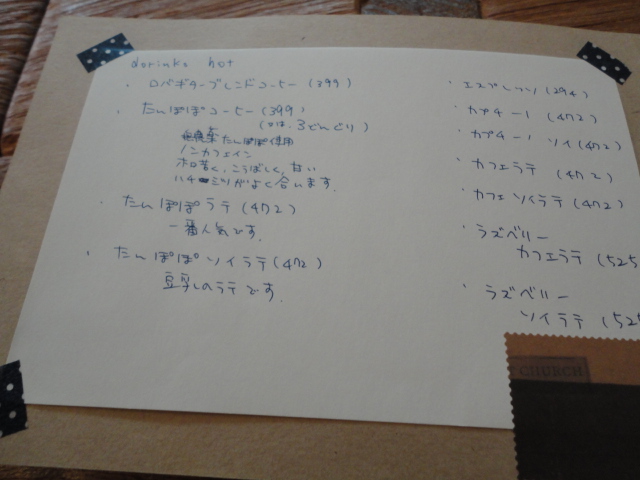 dorinko hot
・ロバギターブレンドコーヒー(399)
・たんぽぽコーヒー(399)
3どんどり)
たんぽぽ使用
ノンカフェイン
ホロ苦く、こうばしく、甘い
ハチミツがよく合います。
・たんぽぽラテ(472)
一番人気です。
・たんぽぽソイラテ(472)
豆乳のラテです。
・エスプレッソ(294)
・カプチーノ(472)
・カプチーノ ソイ(472)
・カフェラテ(472)
・カフェソイラテ(472)
・ラズベリー
カフェラテ(525
・ラズベリー
ソイラテ(525
CHURCH